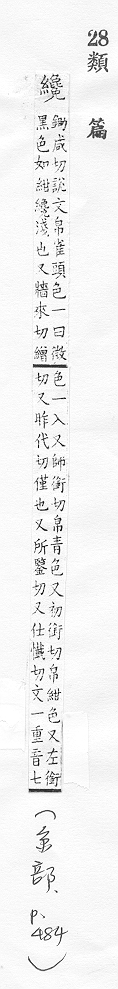 28 類篇
纔
鋤咸切說文帛雀頭色一曰微
黑色如紺纔淺也又牆來切繒
色一入又師銜切帛青色又初銜切帛紺色又左銜
切又昨代切僅也又所鑒切又仕懺切文一重音七
(糸部、p.484)